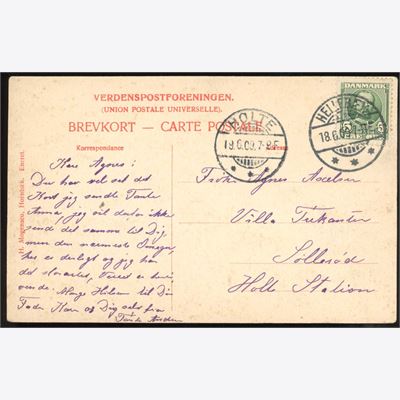 VERDENSPOSTFORENINGEN.
(UNION POSTALE UNIVERSELLE).
BREVKORT — CARTE POSTALE.
Korrespondance
Adresse
H. Mogensen, Hornbæk. Eneret.
DANMARK
5
HOLTE
19.6.09.7-8F
18.6.
Kære Agnes!
Du har vel set det
Kort jeg sendte Tante
Anna, jeg vil derfor ikke
sende det samme til Dig,
men den nærmeste Omegn,
her er dejligt og jeg har
det
Mange Hilsen til Din
Fader og Dig selv fra
Tante
Frøken Agnes Axelsen
Villa Trekanten
Søllerød
Holte Station